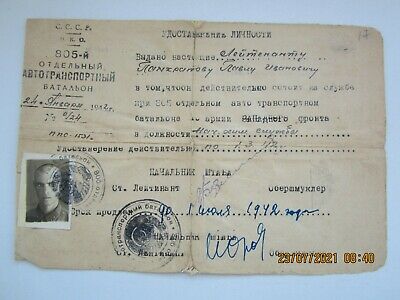 С. С. С. Р.
Н. К. О.
805-й
ОТДЕЛЬНЫЙ
АВТОТРАНСПОРТНЫЙ
БАТАЛЬОН
24 Января 1942 г.
УДОСТОВЕРЕНИЕ ЛИЧНОСТИ
Выдано настоящее Лейтенанту
Панкратову Павлу Ивановичу
в том, что он действительно состоит на службе
при 805 отдельном авто транспортном
батальона армии Западного фронта
в должности Нач. хим. службы
Удостоверение действительно по 1.3.42
НАЧАЛЬНИК ШТАБА
Ст. Лейтинант обершмуклер
Срок продлен до 1 июля 1942 года
НАЧАЛЬНИК ШТАБА
Ст. Лейтинант
23/07/2021 08:40